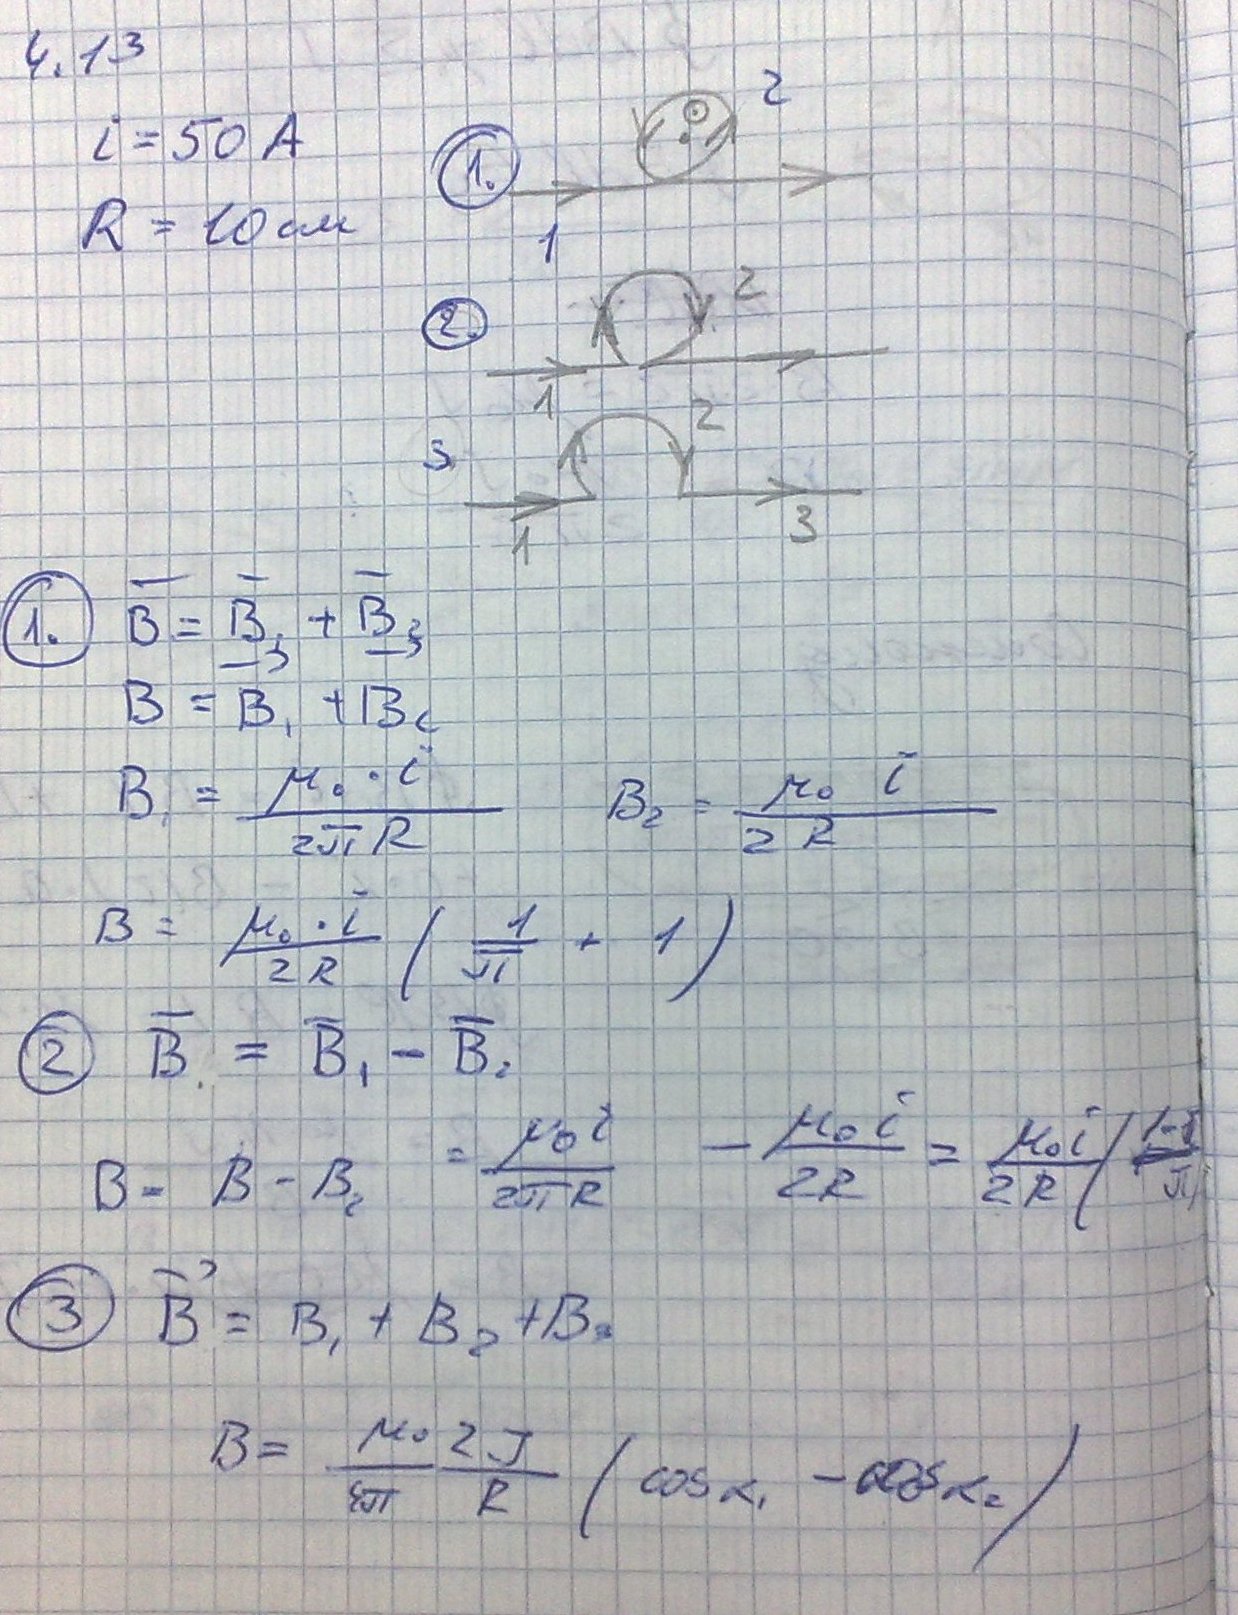 4.13
i = 50 А
R = 10 см
1. 1 2
2. 1 2
3. 1 2 3
1. B̅ = B̅₁ + B̅₂
B = B₁ + B₂
B₁ = μ₀ · i / 2πR    B₂ = μ₀ i / 2R
B = μ₀ · i / 2R ( 1/π + 1 )
2 B̅ = B̅₁ − B̅₂
B = B − B₂ = μ₀ i / 2πR − μ₀ i / 2R = μ₀ i / 2R (
3 B⃗ = B₁ + B₂ + B₃
B = μ₀/4π 2J/R ( cos α₁ − cos α₂ )